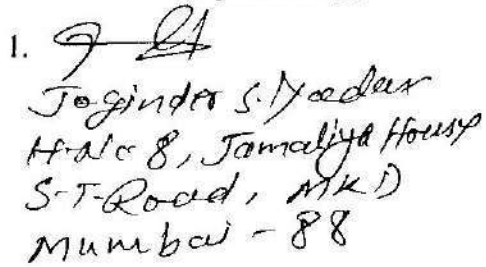 1.
Joginder S. Yadav
H. No 8, Jamaliya House
S-T-Road, MKD
Mumbai - 88